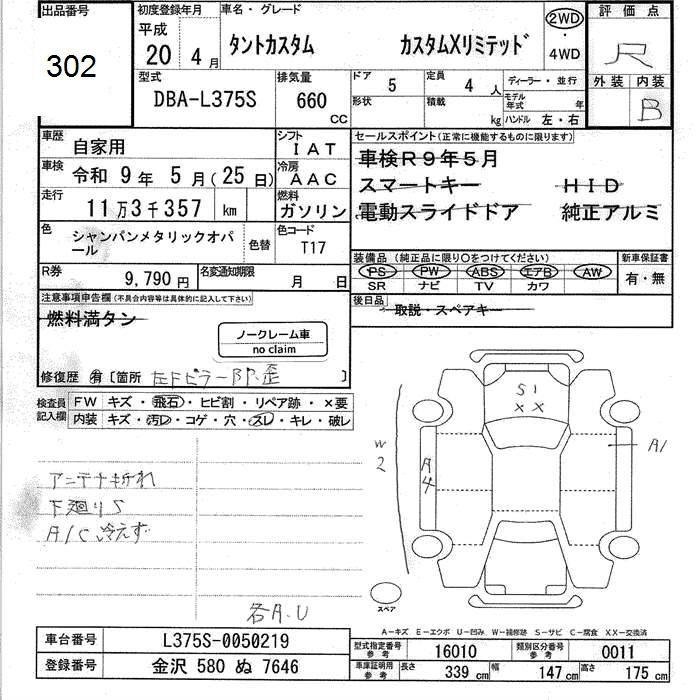 出品番号
302
初度登録年月
平成
20 年 4 月
車名・グレード
タントカスタム カスタムXリミテッド
2WD
・
4WD
評価点
R
外装 内装
B
型式
DBA-L375S
排気量
660
CC
ドア
5
形状
定員
4 人
積載
kg
ディーラー・並行
モデル年式 年
ハンドル 左・右
車歴
自家用
シフト
IAT
車検
令和 9 年 5 月(25 日)
冷房
AAC
走行
11万3千357 km
燃料
ガソリン
色
シャンパンメタリックオパール
色替
色コード
T17
R券
9,790 円
名変通知期限
月 日
セールスポイント(正常に機能するものに限ります)
車検R9年5月
スマートキー HID
電動スライドドア 純正アルミ
装備品(純正品に限り○をつけてください)
PS PW ABS エアB AW
SR ナビ TV カワ
新車保証書
有・無
後日品
取説・スペアキー
注意事項申告欄(不具合内容等は具体的に記入して下さい)
燃料満タン
ノークレーム車
no claim
修復歴 有 [箇所 左Fピラー BP.歪 ]
検査員記入欄
FW キズ・飛石・ヒビ割・リペア跡・×要
内装 キズ・汚レ・コゲ・穴・スレ・キレ・破レ
アンテナ折れ
下廻りS
A/C冷えず
各A.U
S1
XX
W2
A4
A1
スペア
A-キズ E-エクボ U-凹み W-補修跡 S-サビ C-腐食 XX-交換済
車台番号
L375S-0050219
登録番号
金沢 580 ぬ 7646
型式指定番号
参考
16010
類別区分番号
参考
0011
車庫証明用
参考
長さ 339 cm 幅 147 cm 高さ 175 cm